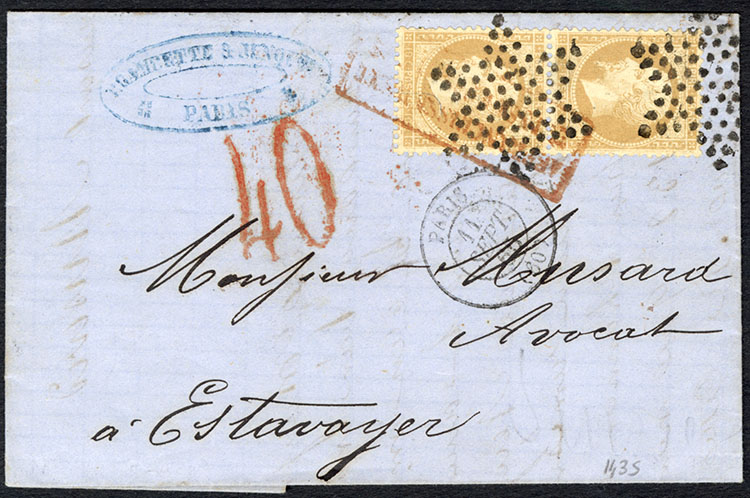 PARIS
40
PARIS
11E
SEPT
(60)
Monsieur Musard
Avocat
à Estavayer
1435